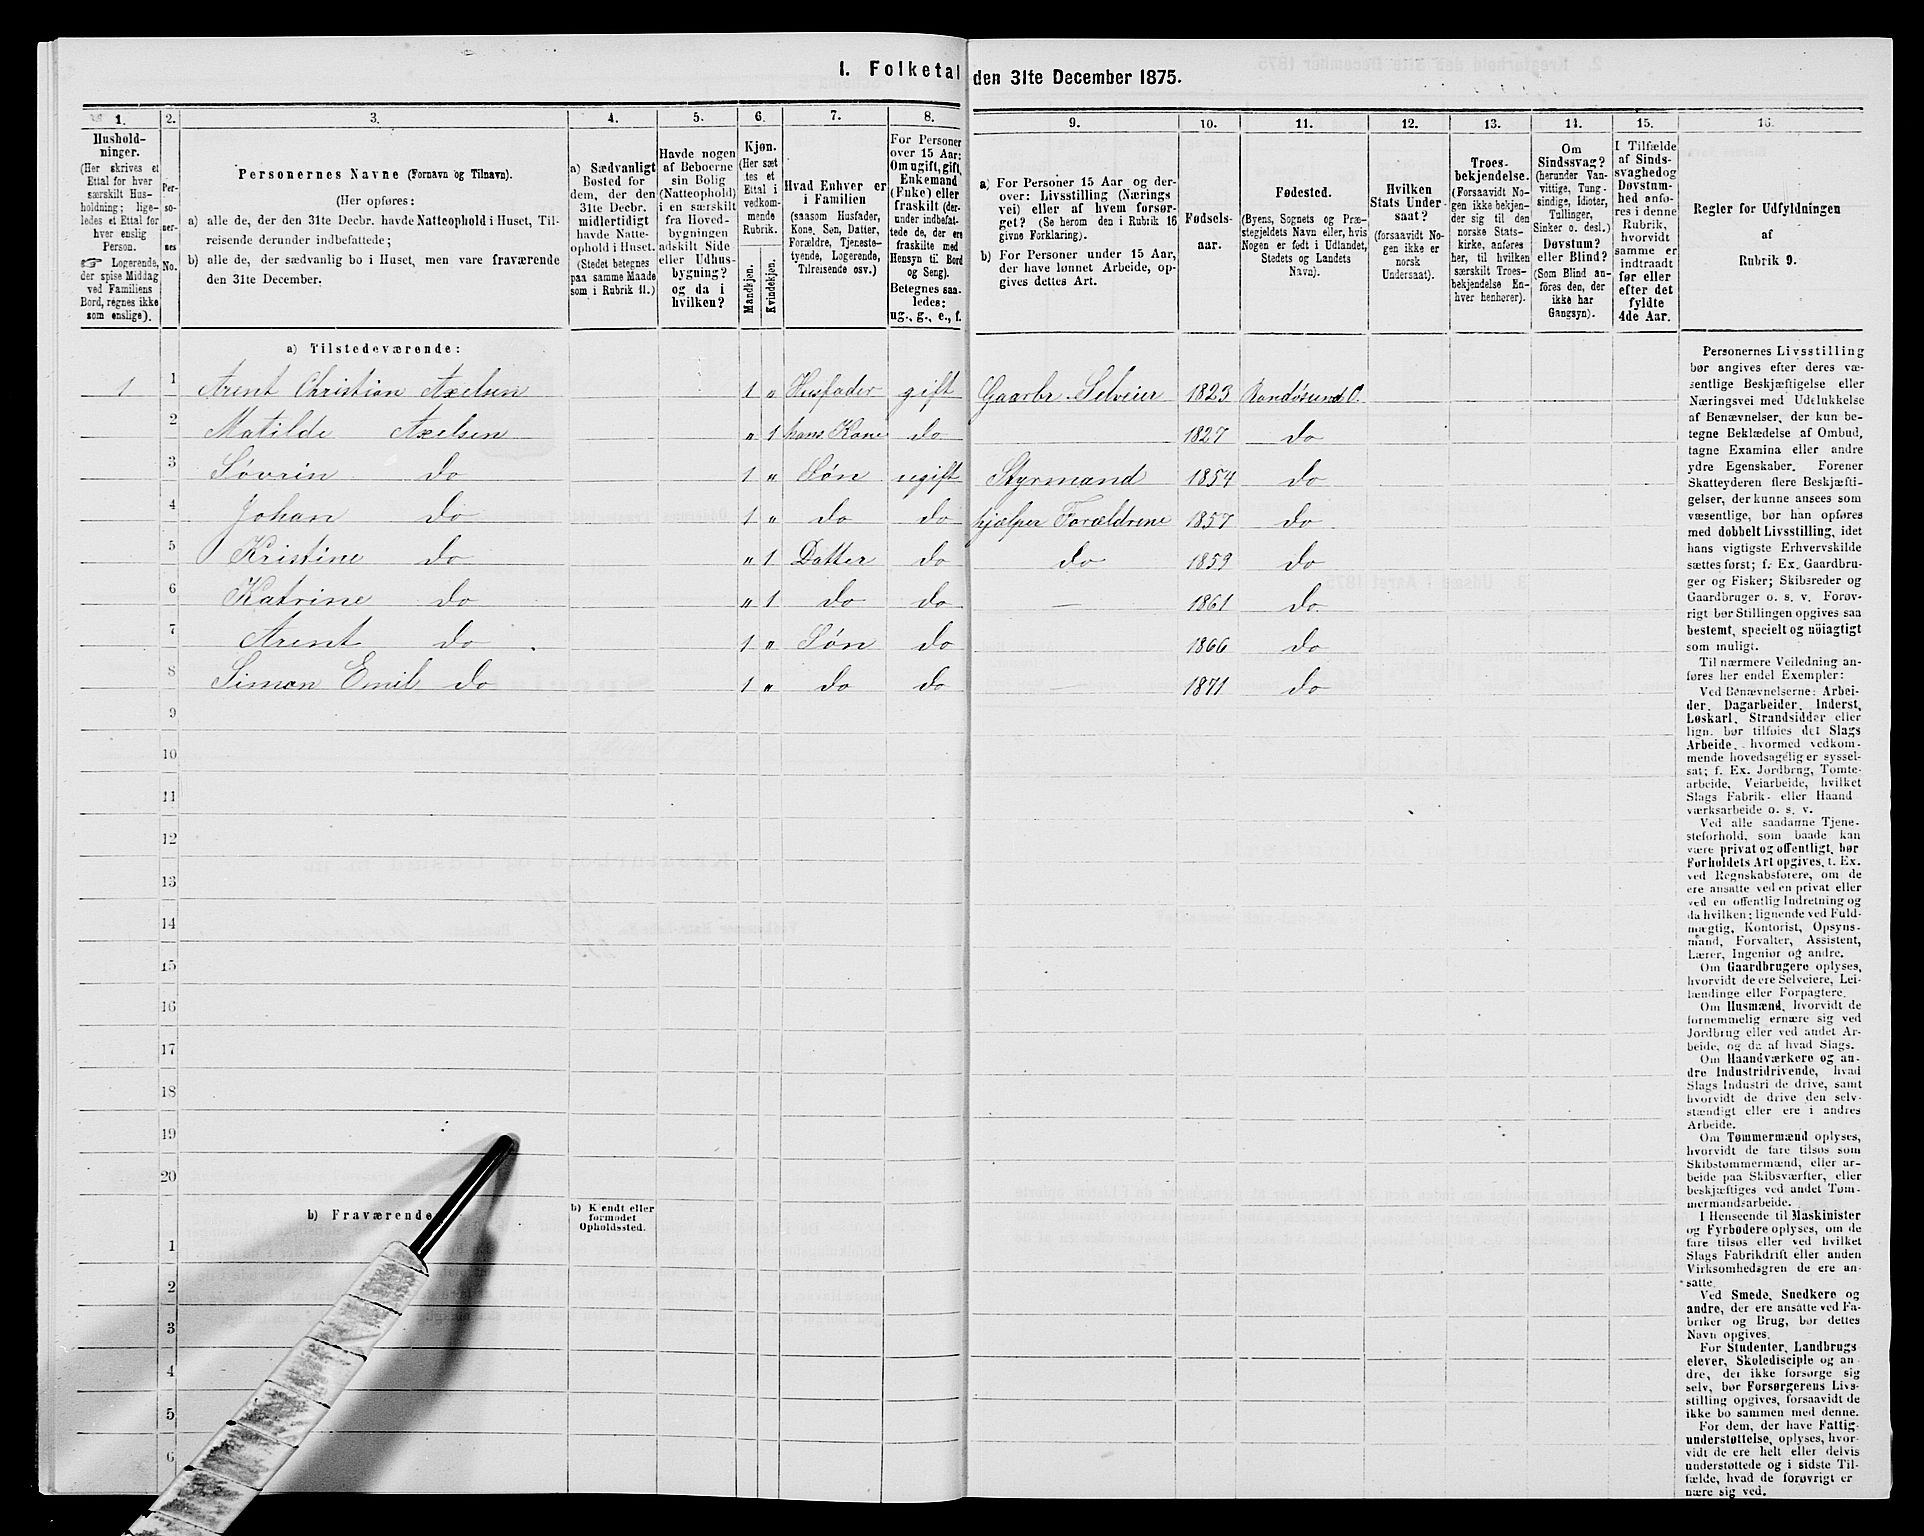 I. Folketal den 31te December 1875.
1. 2. 3. 4. 5. 6. 7. 8. 9. 10. 11. 12. 13. 14. 15. 16.
Hushold-
ninger.
(Her skrives et
Ettal for hver
særskilt Hus-
holdning; lige-
ledes et Ettal for
hver enslig
Person.
☞ Logerende,
der spise Middag
ved Familiens
Bord, regnes ikke
som enslige).
Per-
so-
ner-
nes
No.
Personernes Navne (Fornavn og Tilnavn).
(Her opføres:
a) alle de, der den 31te Decbr. havde Natteophold i Huset, Til-
reisende derunder indbefattede;
b) alle de, der sædvanlig bo i Huset, men vare fraværende
den 31te December.
a) Sædvanligt
Bosted for
dem, der den
31te Decbr.
midlertidigt
havde Natte-
ophold i Huset.
(Stedet betegnes
paa samme Maade
som i Rubrik 11.)
Havde nogen
af Beboerne
sin Bolig
(Natteophold)
i en særskilt
fra Hoved-
bygningen
adskilt Side
eller Udhus-
bygning?
og da i
hvilken?
Kjøn.
(Her sæt
tes et
Ettal i
vedkom-
mende
Rubrik.
Mandkjøn.
Kvindekjøn.
Hvad Enhver er
i Familien
(saasom Husfader,
Kone, Søn, Datter,
Forældre, Tjeneste-
tyende, Logerende,
Tilreisende osv.)
For Personer
over 15 Aar:
Om ugift, gift,
Enkemand
(Enke) eller
fraskilt (der-
under indbefat-
tede de, der ere
fraskilte med
Hensyn til Bord
og Seng).
Betegnes saa-
ledes:
ug., g., e., f.
a) For Personer 15 Aar og der-
over: Livsstilling (Nærings
vei) eller af hvem forsør-
get? (Se herom den i Rubrik 16
givne Forklaring).
b) For Personer under 15 Aar,
der have lønnet Arbeide, op-
gives dettes Art.
Fødsels-
aar.
Fødested.
(Byens, Sognets og Præ-
stegjeldets Navn eller, hvis
Nogen er født i Udlandet,
Stedets og Landets
Navn).
Hvilken
Stats Under-
saat?
(forsaavidt No-
gen ikke er
norsk
Undersaat).
Troes-
bekjendelse.
(Forsaavidt No-
gen ikke bekjen-
der sig til den
norske Stats-
kirke, anføres
her, til hvilken
særskilt Troes-
bekjendelse En-
hver henhører).
Om
Sindssvag?
(herunder Van-
vittige, Tung-
sindige, Idioter,
Tullinger,
Sinker o. desl.)
Døvstum?
eller Blind?
(Som Blind an-
føres den, der
ikke har
Gangsyn).
I Tilfælde
af Sinds-
svaghed og
Døvstum-
hed anfø-
res i denne
Rubrik,
hvorvidt
samme er
indtraadt
før eller
efter det
fyldte
4de Aar.
Regler for Udfyldningen
af
Rubrik 9.
a) Tilstedeværende:
1 1 Arent Christian Axelsen 1 " Husfader gift Gaardbr. Selveier 1823 Randøsund O.
2 Matilde Axelsen " 1 hans Kone do 1827 do
3 Søvrin do 1 " Søn ugift Styrmand 1854 do
4 Johan do 1 " do do hjælper Forældrene 1857 do
5 Kristine do " 1 Datter do do 1859 do
6 Katrine do " 1 do do — 1861 do
7 Arent do 1 " Søn do 1866 do
8 Simon Emil do 1 " do do — 1871 do
9
10
11
12
13
14
15
16
17
18
19
20
b) Fraværende
b) Kjendt eller
formodet
Opholdssted.
1
2
3
4
5
6
Personernes Livsstilling
bør angives efter deres væ-
sentlige Beskjæftigelse eller
Næringsvei med Udelukkelse
af Benævnelser, der kun be-
tegne Beklædelse af Ombud,
tagne Examina eller andre
ydre Egenskaber. Forener
Skatteyderen flere Beskjæfti-
gelser, der kunne ansees som
væsentlige, bør han opføres
med dobbelt Livsstilling, idet
hans vigtigste Erhvervskilde
sættes først; f. Ex. Gaardbru-
ger og Fisker; Skibsreder og
Gaardbruger o. s. v. Forøv-
rigt bør Stillingen opgives saa
bestemt, specielt og nöiagtigt
som muligt.
Til nærmere Veiledning an-
føres her endel Exempler:
Ved Benævnelserne: Arbei-
der, Dagarbeider, Inderst,
Løskarl, Strandsidder eller
lign. bør tilføies det Slags
Arbeide, hvormed vedkom-
mende hovedsagelig er syssel-
sat; f. Ex. Jordbrug, Tomte-
arbeide, Veiarbeide, hvilket
Slags Fabrik- eller Haand-
værksarbeide o. s. v.
Ved alle saadanne Tjene-
steforhold, som baade kan
være privat og offentligt, bør
Forholdets Art opgives, t. Ex.
ved Regnskabsførere, om de
ere ansatte ved en privat eller
ved en offentlig Indretning og
da hvilken; lignende ved Fuld-
mægtig, Kontorist, Opsyns-
mand, Forvalter, Assistent,
Lærer, Ingeniør og andre.
Om Gaardbrugere oplyses,
hvorvidt de ere Selveiere, Lei-
lændinge eller Forpagtere.
Om Husmænd, hvorvidt de
fornemmelig ernære sig ved
Jordbrug eller ved andet Ar-
beide, og da af hvad Slags.
Om Haandværkere og an-
dre Industridrivende, hvad
Slags Industri de drive, samt
hvorvidt de drive den selv-
stændigt eller ere i andres
Arbeide.
Om Tømmermænd oplyses,
hvorvidt de fare tilsøs som
Skibstømmermænd, eller ar-
beide paa Skibsværfter, eller
beskjæftiges ved andet Tøm-
mermandsarbeide.
I Henseende til Maskinister
og Fyrbødere oplyses, om de
fare tilsøs eller ved hvilket
Slags Fabrikdrift eller anden
Virksomhedsgren de ere an-
satte.
Ved Smede, Snedkere og
andre, der ere ansatte ved Fa-
briker og Brug, bør dettes
Navn opgives.
For Studenter, Landbrugs
elever, Skoledisciple og an-
dre, der ikke forsørge sig
selv, bør Forsørgerens Livs-
stilling opgives, forsaavidt de
ikke bo sammen med denne.
For dem, der have Fattig-
understøttelse, oplyses, hvor-
vidt de ere helt eller delvis
understøttede og i sidste Til-
fælde, hvad de forøvrigt er
nære sig ved.